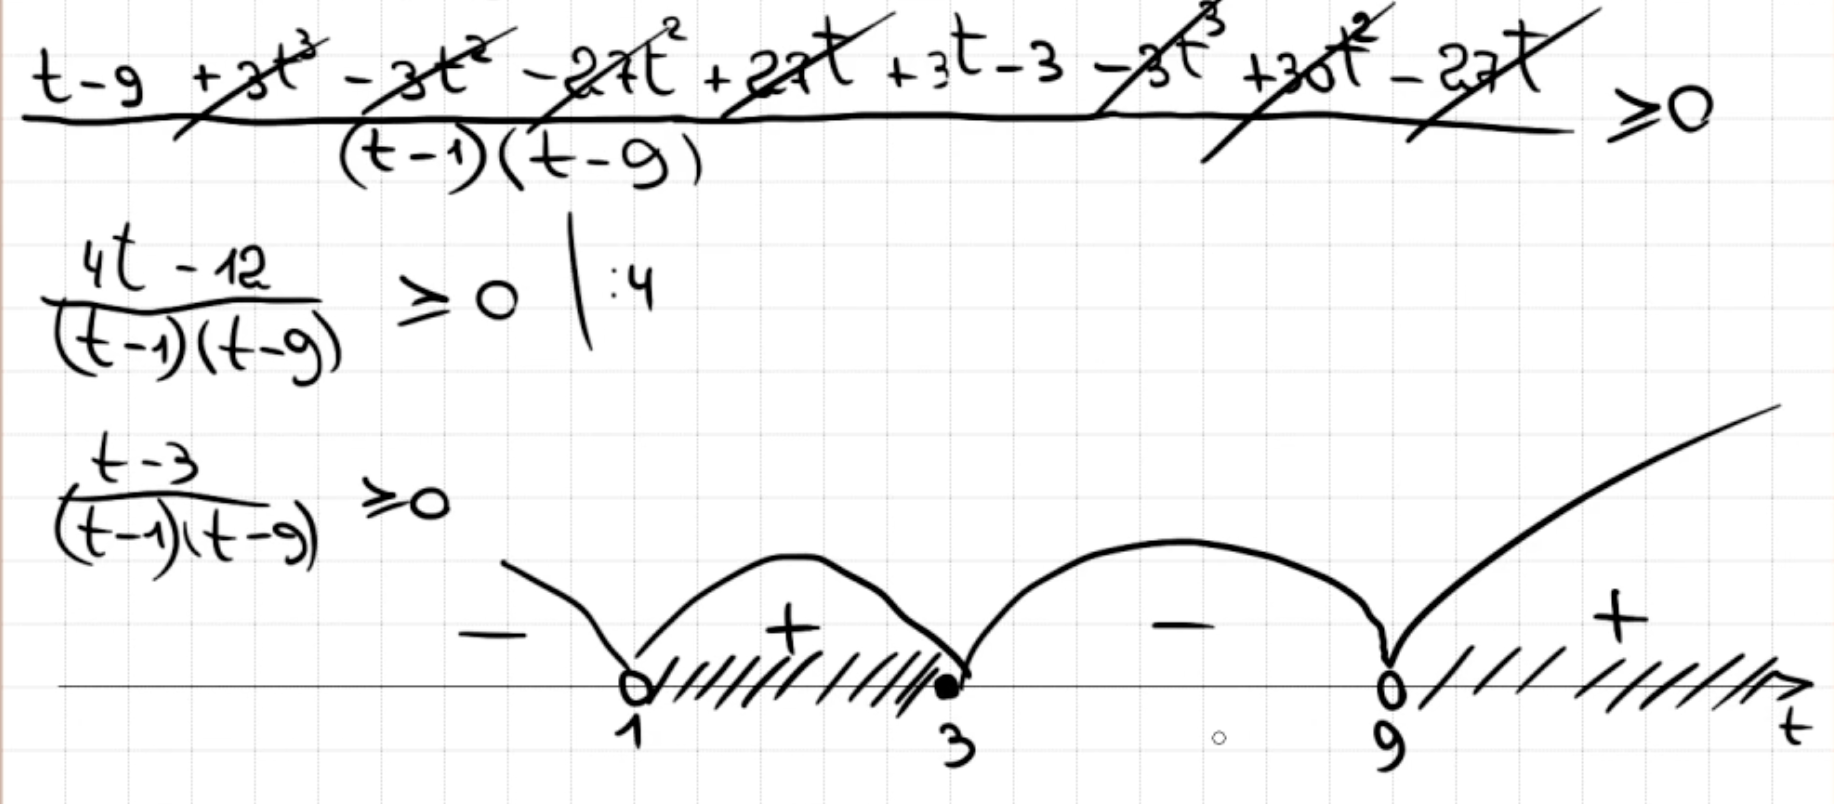 t-9 +3t³ -3t² -27t² +27t +3t-3 -3t³ +30t² -27t ≥0
(t-1)(t-9)
4t-12 ≥0 | :4
(t-1)(t-9)
t-3 ≥0
(t-1)(t-9)
- + - +
1 3 9 t